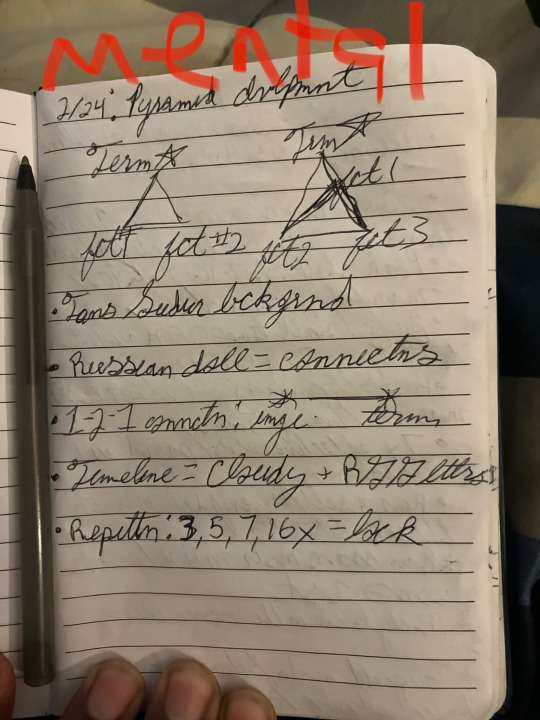 mental
2/24: Pyramid dvlpmnt
Term☆ Trm☆
fct 1
fct1 fct #2 fct2 fct3
• bckgrnd
• Russian doll = connectns
• 1-2-1 connctn: imge term
• Timeline = Cloudy +
• Repettn: 3, 5, 7, 16x = lock